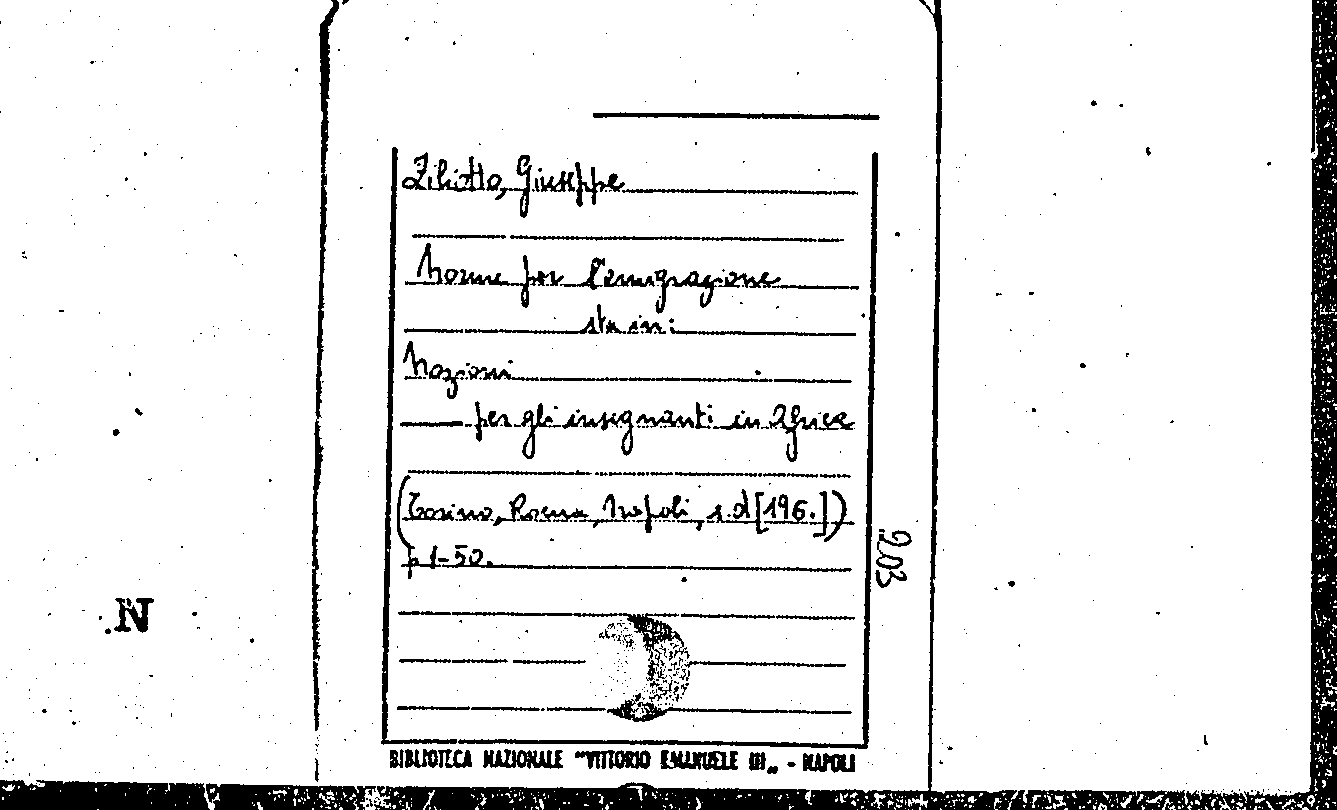 Ziliotto, Giuseppe
Norme per l'emigrazione
sta in:
Nozioni
—— per gli insegnanti in Africa
(Torino, Roma, Napoli, s.d [196.])
p 1-50.
203
.N
BIBLIOTECA NAZIONALE "VITTORIO EMANUELE III„ - NAPOLI